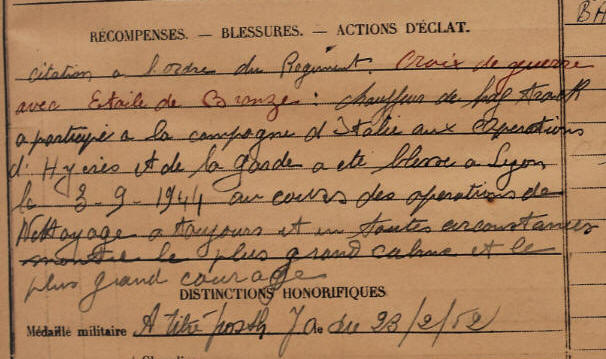 BA
RÉCOMPENSES. — BLESSURES. — ACTIONS D'ÉCLAT.
Citation a l'ordre du Régiment. Croix de guerre
avec Etoile de Bronze : chauffeur de half track
a participé a la campagne d'Italie aux Operations
d'Hyères et de la Garde a eté blessé a Lyon
le 3-9-1944 au cours des operations de
Nettoyage a toujours et en toutes circonstances
montré le plus grand calme et le
plus grand courage
DISTINCTIONS HONORIFIQUES
Médaille militaire A titre posth du 23/2/52